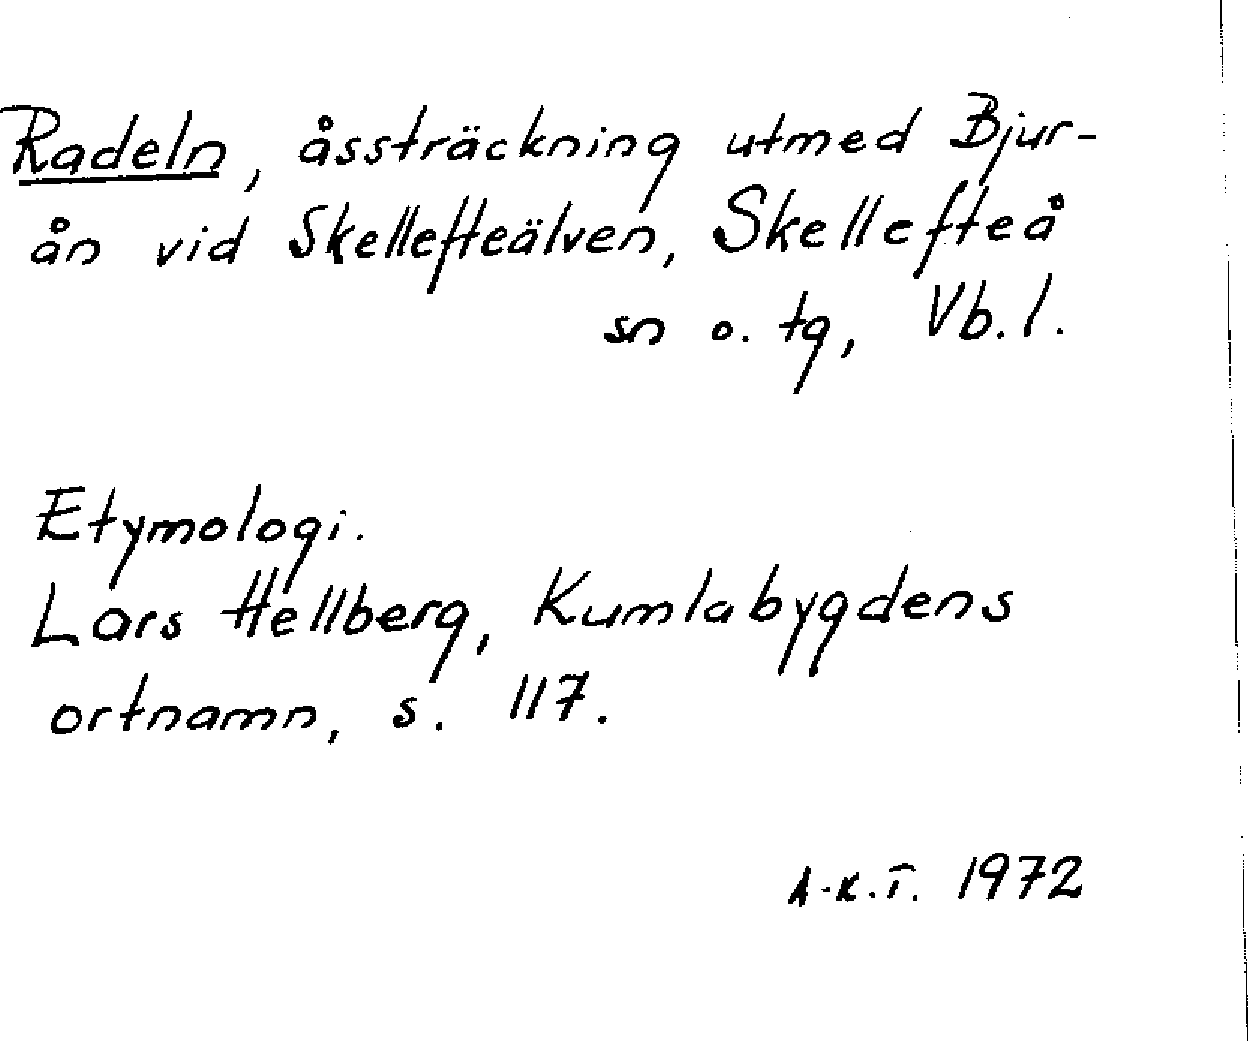 Radeln, åssträckning utmed Bjur-
ån vid Skellefteälven, Skellefteå
sn o. tg, Vb. l.
Etymologi.
Lars Hellberg, Kumlabygdens
ortnamn, s. 117.
A-K.T. 1972